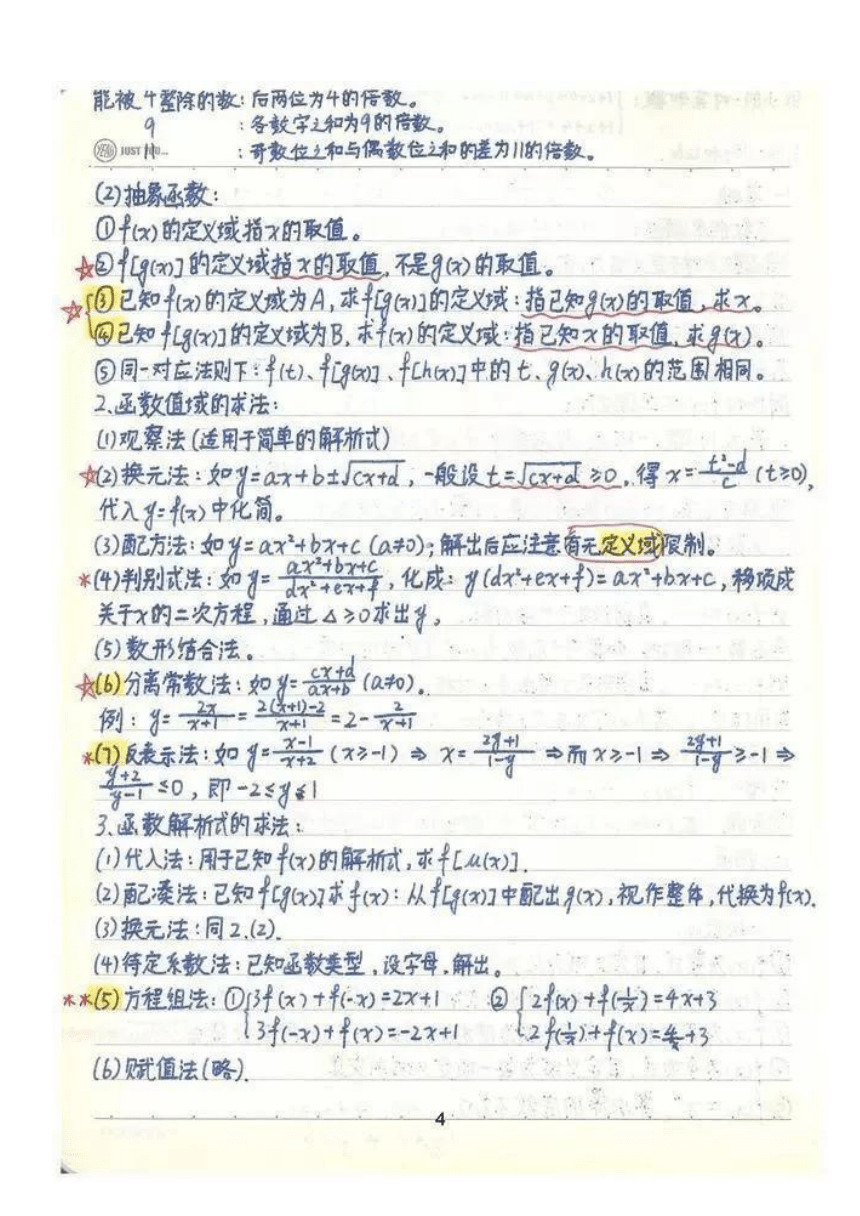 能被4整除的数:后两位为4的倍数。
9 :各数字之和为9的倍数。
JUST 11 :奇数位之和与偶数位之和的差为11的倍数。
(2)抽象函数:
①f(x)的定义域指x的取值。
☆②f[g(x)]的定义域指x的取值,不是g(x)的取值。
☆③已知f(x)的定义域为A,求f[g(x)]的定义域:指已知g(x)的取值,求x。
④已知f[g(x)]的定义域为B,求f(x)的定义域:指已知x的取值,求g(x)。
⑤同一对应法则下:f(t)、f[g(x)]、f[h(x)]中的t、g(x)、h(x)的范围相同。
2.函数值域的求法:
(1)观察法(适用于简单的解析式)
☆(2)换元法:如y=ax+b±√(cx+d),一般设t=√(cx+d)≥0,得x=(t²-d)/c (t≥0),
代入y=f(x)中化简。
(3)配方法:如y=ax²+bx+c(a≠0);解出后应注意有无定义域限制。
*(4)判别式法:如y=(ax²+bx+c)/(dx²+ex+f),化成:y(dx²+ex+f)=ax²+bx+c,移项成
关于x的二次方程,通过△≥0求出y。
(5)数形结合法。
☆(6)分离常数法:如y=(cx+d)/(ax+b)(a≠0)。
例:y=2x/(x+1)=(2(x+1)-2)/(x+1)=2-2/(x+1)
*(7)反表示法:如y=(x-1)/(x+2)(x≥-1)⇒x=(2y+1)/(1-y)⇒而x≥-1⇒(2y+1)/(1-y)≥-1⇒
(y+2)/(y-1)≤0,即-2≤y≤1
3.函数解析式的求法:
(1)代入法:用于已知f(x)的解析式,求f[u(x)].
(2)配凑法:已知f[g(x)]求f(x):从f[g(x)]中配出g(x),视作整体,代换为f(x).
(3)换元法:同2.(2).
(4)待定系数法:已知函数类型,设字母,解出。
**(5)方程组法:①{3f(x)+f(-x)=2x+1 ②{2f(x)+f(1/x)=4x+3
3f(-x)+f(x)=-2x+1 2f(1/x)+f(x)=4/x+3
(6)赋值法(略).
4